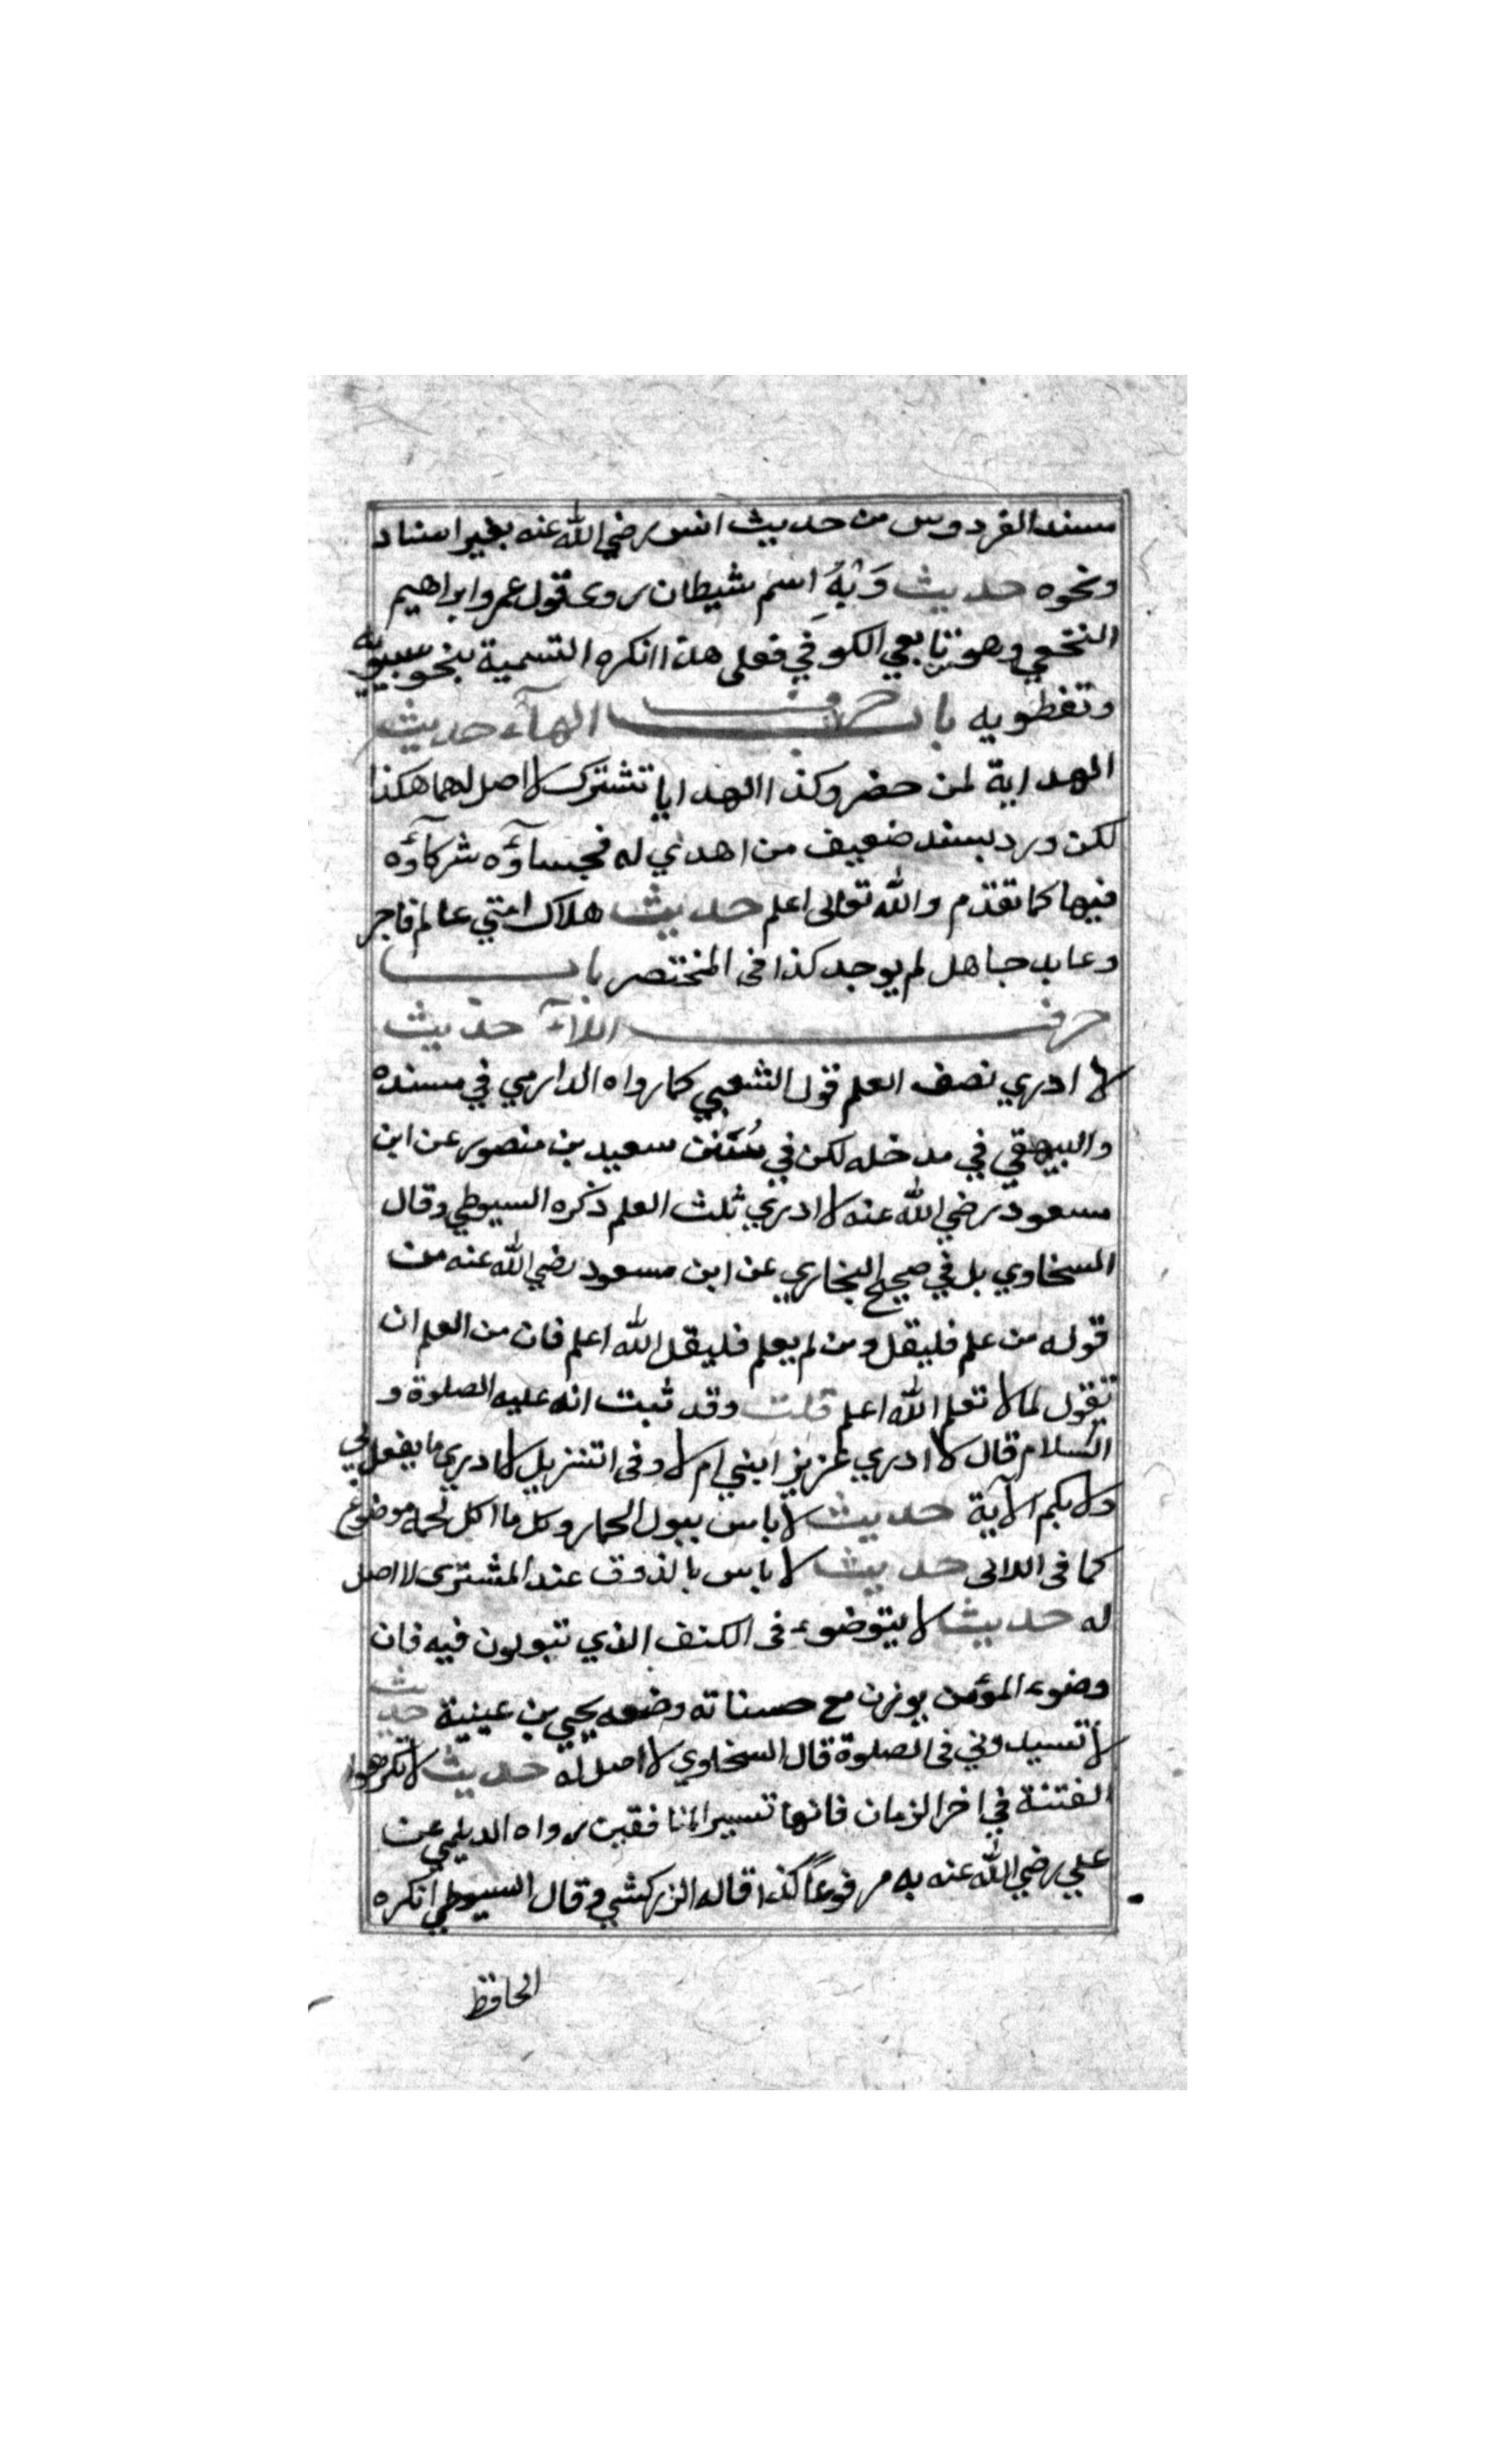 مسند الفردوس من حديث انس رضي الله عنه بغير اسناد
ونحوه حديث وَيْهِ اسم شيطان روى قول عمر وابراهيم
النخعي وهو تابعي الكوفي فعلى هذا انكره التسمية بنحو سيبويه
وتفطويه باب حرف الهآء حديث
الهداية لمن حضر وكذا الهدايا تشترك لا اصل لهما هكذا
لكن ورد بسند ضعيف من اهدي له فجلساؤه شركآؤه
فيها كما تقدم والله تعالى اعلم حديث هلاك امتي عالم فاجر
وعابد جاهل لم يوجد كذا فى المختصر باب
حرف اللآء حديث
لا ادري نصف العلم قول الشعبي كما رواه الدارمي في مسنده
والبيهقي في مدخله لكن في سُنَن سعيد بن منصور عن ابن
مسعود رضي الله عنه لا ادري ثلث العلم ذكره السيوطي وقال
السخاوي بل في صحيح البخاري عن ابن مسعود رضي الله عنه من
قوله من علم فليقل ومن لم يعلم فليقل الله اعلم فان من العلم ان
تقول لما لا تعلم الله اعلم قلت وقد ثبت انه عليه الصلوة و
السلام قال لا ادري عزيز ابني ام لا وفى اتنزيل لا ادري ما يفعل بي
ولا بكم الآية حديث لا باس ببول الحمار وكل ما اكل لحمه موضوع
كما فى اللالى حديث لا باس بالذوق عند المشترى لا اصل
له حديث لا يتوضوء فى الكنف الذي تبولون فيه فان
وضوء المؤمن يوزن مع حسناته وضعه يحيي بن عينية حديث
لا تسيدوني فى الصلوة قال السخاوي لا اصل له حديث لا تكرهوا
الفتنة في اخر الزمان فانها تبير المنافقين رواه الديلمي عن
علي رضي الله عنه به مرفوعاً كذا قاله الزركشي وقال السيوطي انكره
الحافظ